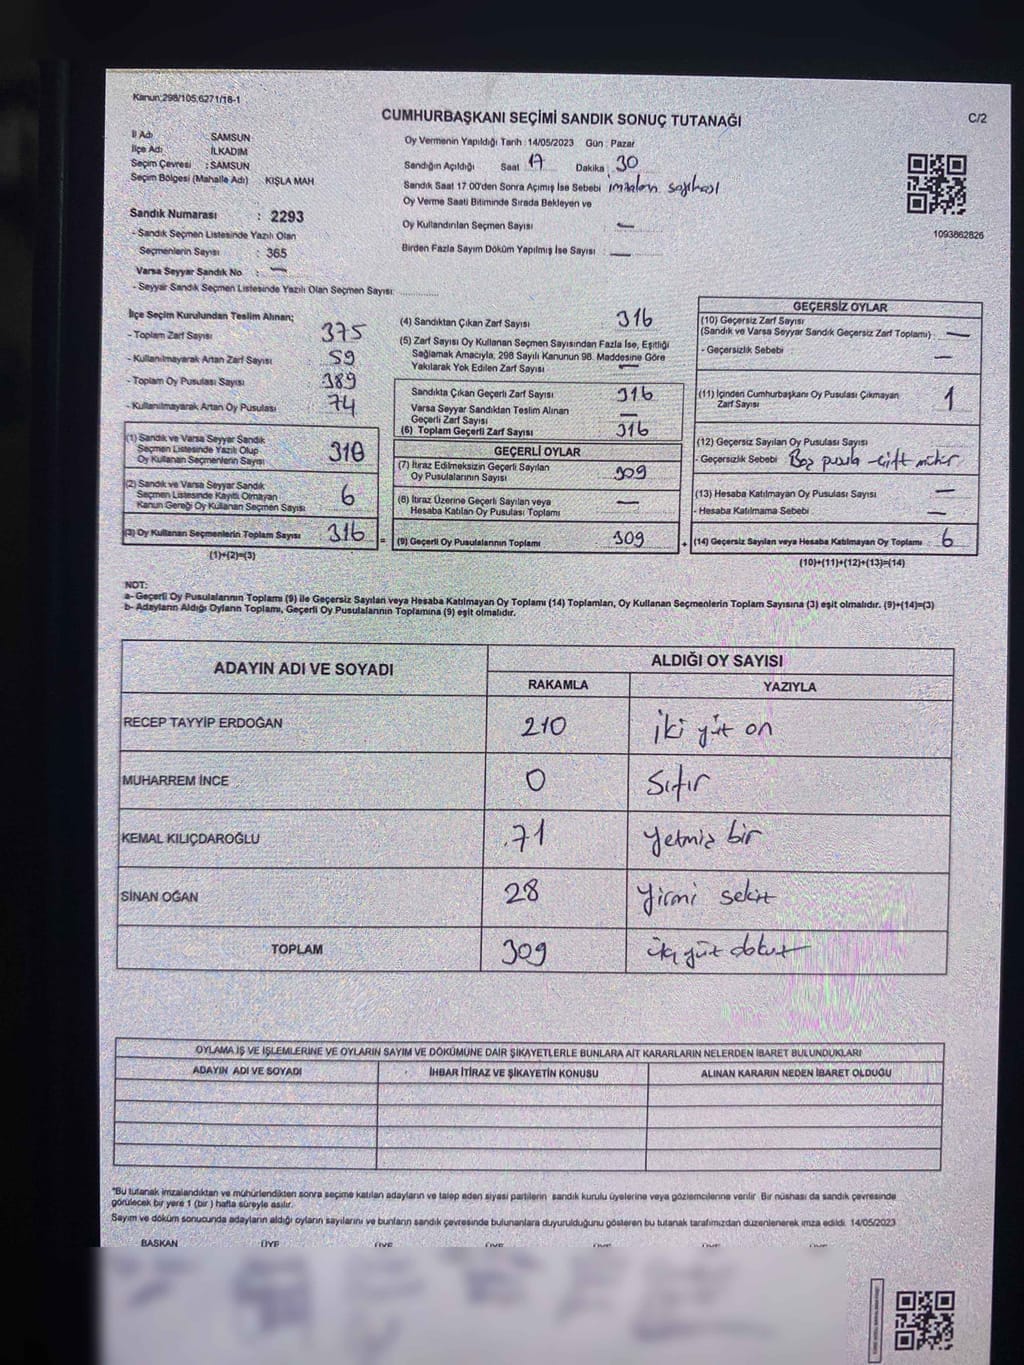 Kanun:298/105;6271/18-1
CUMHURBAŞKANI SEÇİMİ SANDIK SONUÇ TUTANAĞI
C/2
İl Adı : SAMSUN
İlçe Adı : İLKADIM
Seçim Çevresi : SAMSUN
Seçim Bölgesi (Mahalle Adı) KIŞLA MAH
Sandık Numarası : 2293
- Sandık Seçmen Listesinde Yazılı Olan
Seçmenlerin Sayısı : 365
Varsa Seyyar Sandık No : —
- Seyyar Sandık Seçmen Listesinde Yazılı Olan Seçmen Sayısı: ..............
Oy Vermenin Yapıldığı Tarih : 14/05/2023 Gün : Pazar
Sandığın Açıldığı Saat 17 Dakika : 30
Sandık Saat 17:00'den Sonra Açımış İse Sebebi imzaların sayılması
Oy Verme Saati Bitiminde Sırada Bekleyen ve
Oy Kullandırılan Seçmen Sayısı : —
Birden Fazla Sayım Döküm Yapılmış İse Sayısı : —
1093862826
İlçe Seçim Kurulundan Teslim Alınan;
- Toplam Zarf Sayısı 375
- Kullanılmayarak Artan Zarf Sayısı 59
- Toplam Oy Pusulası Sayısı 389
- Kullanılmayarak Artan Oy Pusulası 74
(1) Sandık ve Varsa Seyyar Sandık
Seçmen Listesinde Yazılı Olup
Oy Kullanan Seçmenlerin Sayısı 310
(2) Sandık ve Varsa Seyyar Sandık
Seçmen Listesinde Kayıtlı Olmayan
Kanun Gereği Oy Kullanan Seçmen Sayısı 6
(3) Oy Kullanan Seçmenlerin Toplam Sayısı 316
(1)+(2)=(3)
(4) Sandıktan Çıkan Zarf Sayısı 316
(5) Zarf Sayısı Oy Kullanan Seçmen Sayısından Fazla İse, Eşitliği
Sağlamak Amacıyla, 298 Sayılı Kanunun 98. Maddesine Göre
Yakılarak Yok Edilen Zarf Sayısı —
Sandıkta Çıkan Geçerli Zarf Sayısı 316
Varsa Seyyar Sandıktan Teslim Alınan
Geçerli Zarf Sayısı —
(6) Toplam Geçerli Zarf Sayısı 316
GEÇERLİ OYLAR
(7) İtiraz Edilmeksizin Geçerli Sayılan
Oy Pusulalarının Sayısı 309
(8) İtiraz Üzerine Geçerli Sayılan veya
Hesaba Katılan Oy Pusulası Toplamı —
= (9) Geçerli Oy Pusulalarının Toplamı 309
GEÇERSİZ OYLAR
(10) Geçersiz Zarf Sayısı
(Sandık ve Varsa Seyyar Sandık Geçersiz Zarf Toplamı) —
- Geçersizlik Sebebi —
(11) İçinden Cumhurbaşkanı Oy Pusulası Çıkmayan
Zarf Sayısı 1
(12) Geçersiz Sayılan Oy Pusulası Sayısı
- Geçersizlik Sebebi Boş pusula - çift mühür
(13) Hesaba Katılmayan Oy Pusulası Sayısı —
- Hesaba Katılmama Sebebi —
+ (14) Geçersiz Sayılan veya Hesaba Katılmayan Oy Toplamı 6
(10)+(11)+(12)+(13)=(14)
NOT:
a- Geçerli Oy Pusulalarının Toplamı (9) ile Geçersiz Sayılan veya Hesaba Katılmayan Oy Toplamı (14) Toplamları, Oy Kullanan Seçmenlerin Toplam Sayısına (3) eşit olmalıdır. (9)+(14)=(3)
b- Adayların Aldığı Oyların Toplamı, Geçerli Oy Pusulalarının Toplamına (9) eşit olmalıdır.
ADAYIN ADI VE SOYADI ALDIĞI OY SAYISI
RAKAMLA YAZIYLA
RECEP TAYYİP ERDOĞAN 210 iki yüz on
MUHARREM İNCE 0 Sıfır
KEMAL KILIÇDAROĞLU 71 Yetmiş bir
SİNAN OĞAN 28 Yirmi sekiz
TOPLAM 309 üç yüz dokuz
OYLAMA İŞ VE İŞLEMLERİNE VE OYLARIN SAYIM VE DÖKÜMÜNE DAİR ŞİKAYETLERLE BUNLARA AİT KARARLARIN NELERDEN İBARET BULUNDUKLARI
ADAYIN ADI VE SOYADI İHBAR İTİRAZ VE ŞİKAYETİN KONUSU ALINAN KARARIN NEDEN İBARET OLDUĞU
"Bu tutanak imzalandıktan ve mühürlendikten sonra seçime katılan adayların ve talep eden siyasi partilerin sandık kurulu üyelerine veya gözlemcilerine verilir. Bir nüshası da sandık çevresinde
görülecek bir yere 1 (bir) hafta süreyle asılır.
Sayım ve döküm sonucunda adayların aldığı oyların sayılarını ve bunların sandık çevresinde bulunanlara duyurulduğunu gösteren bu tutanak tarafımızdan düzenlenerek imza edildi. 14/05/2023
BAŞKAN ÜYE ÜYE ÜYE ÜYE ÜYE ÜYE